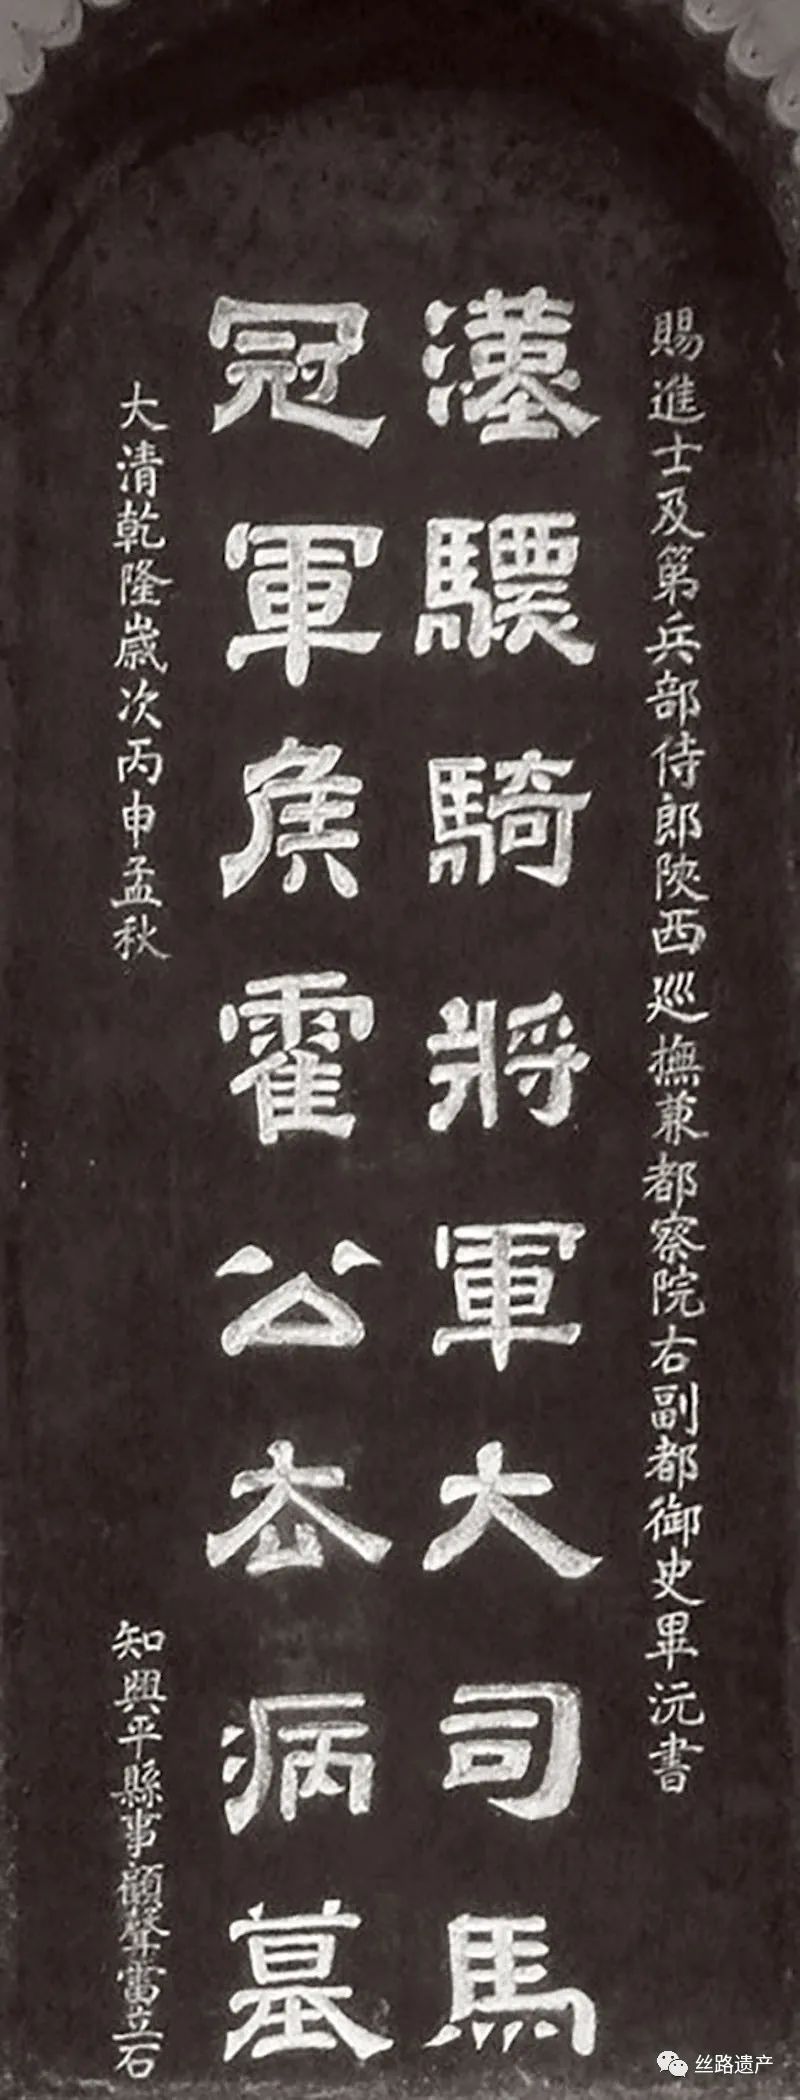 賜進士及第兵部侍郎陝西巡撫兼都察院右副都御史畢沅書
漢驃騎將軍大司馬
冠軍侯霍公去病墓
大清乾隆歲次丙申孟秋
知興平縣事顧聲雷立石
丝路遗产